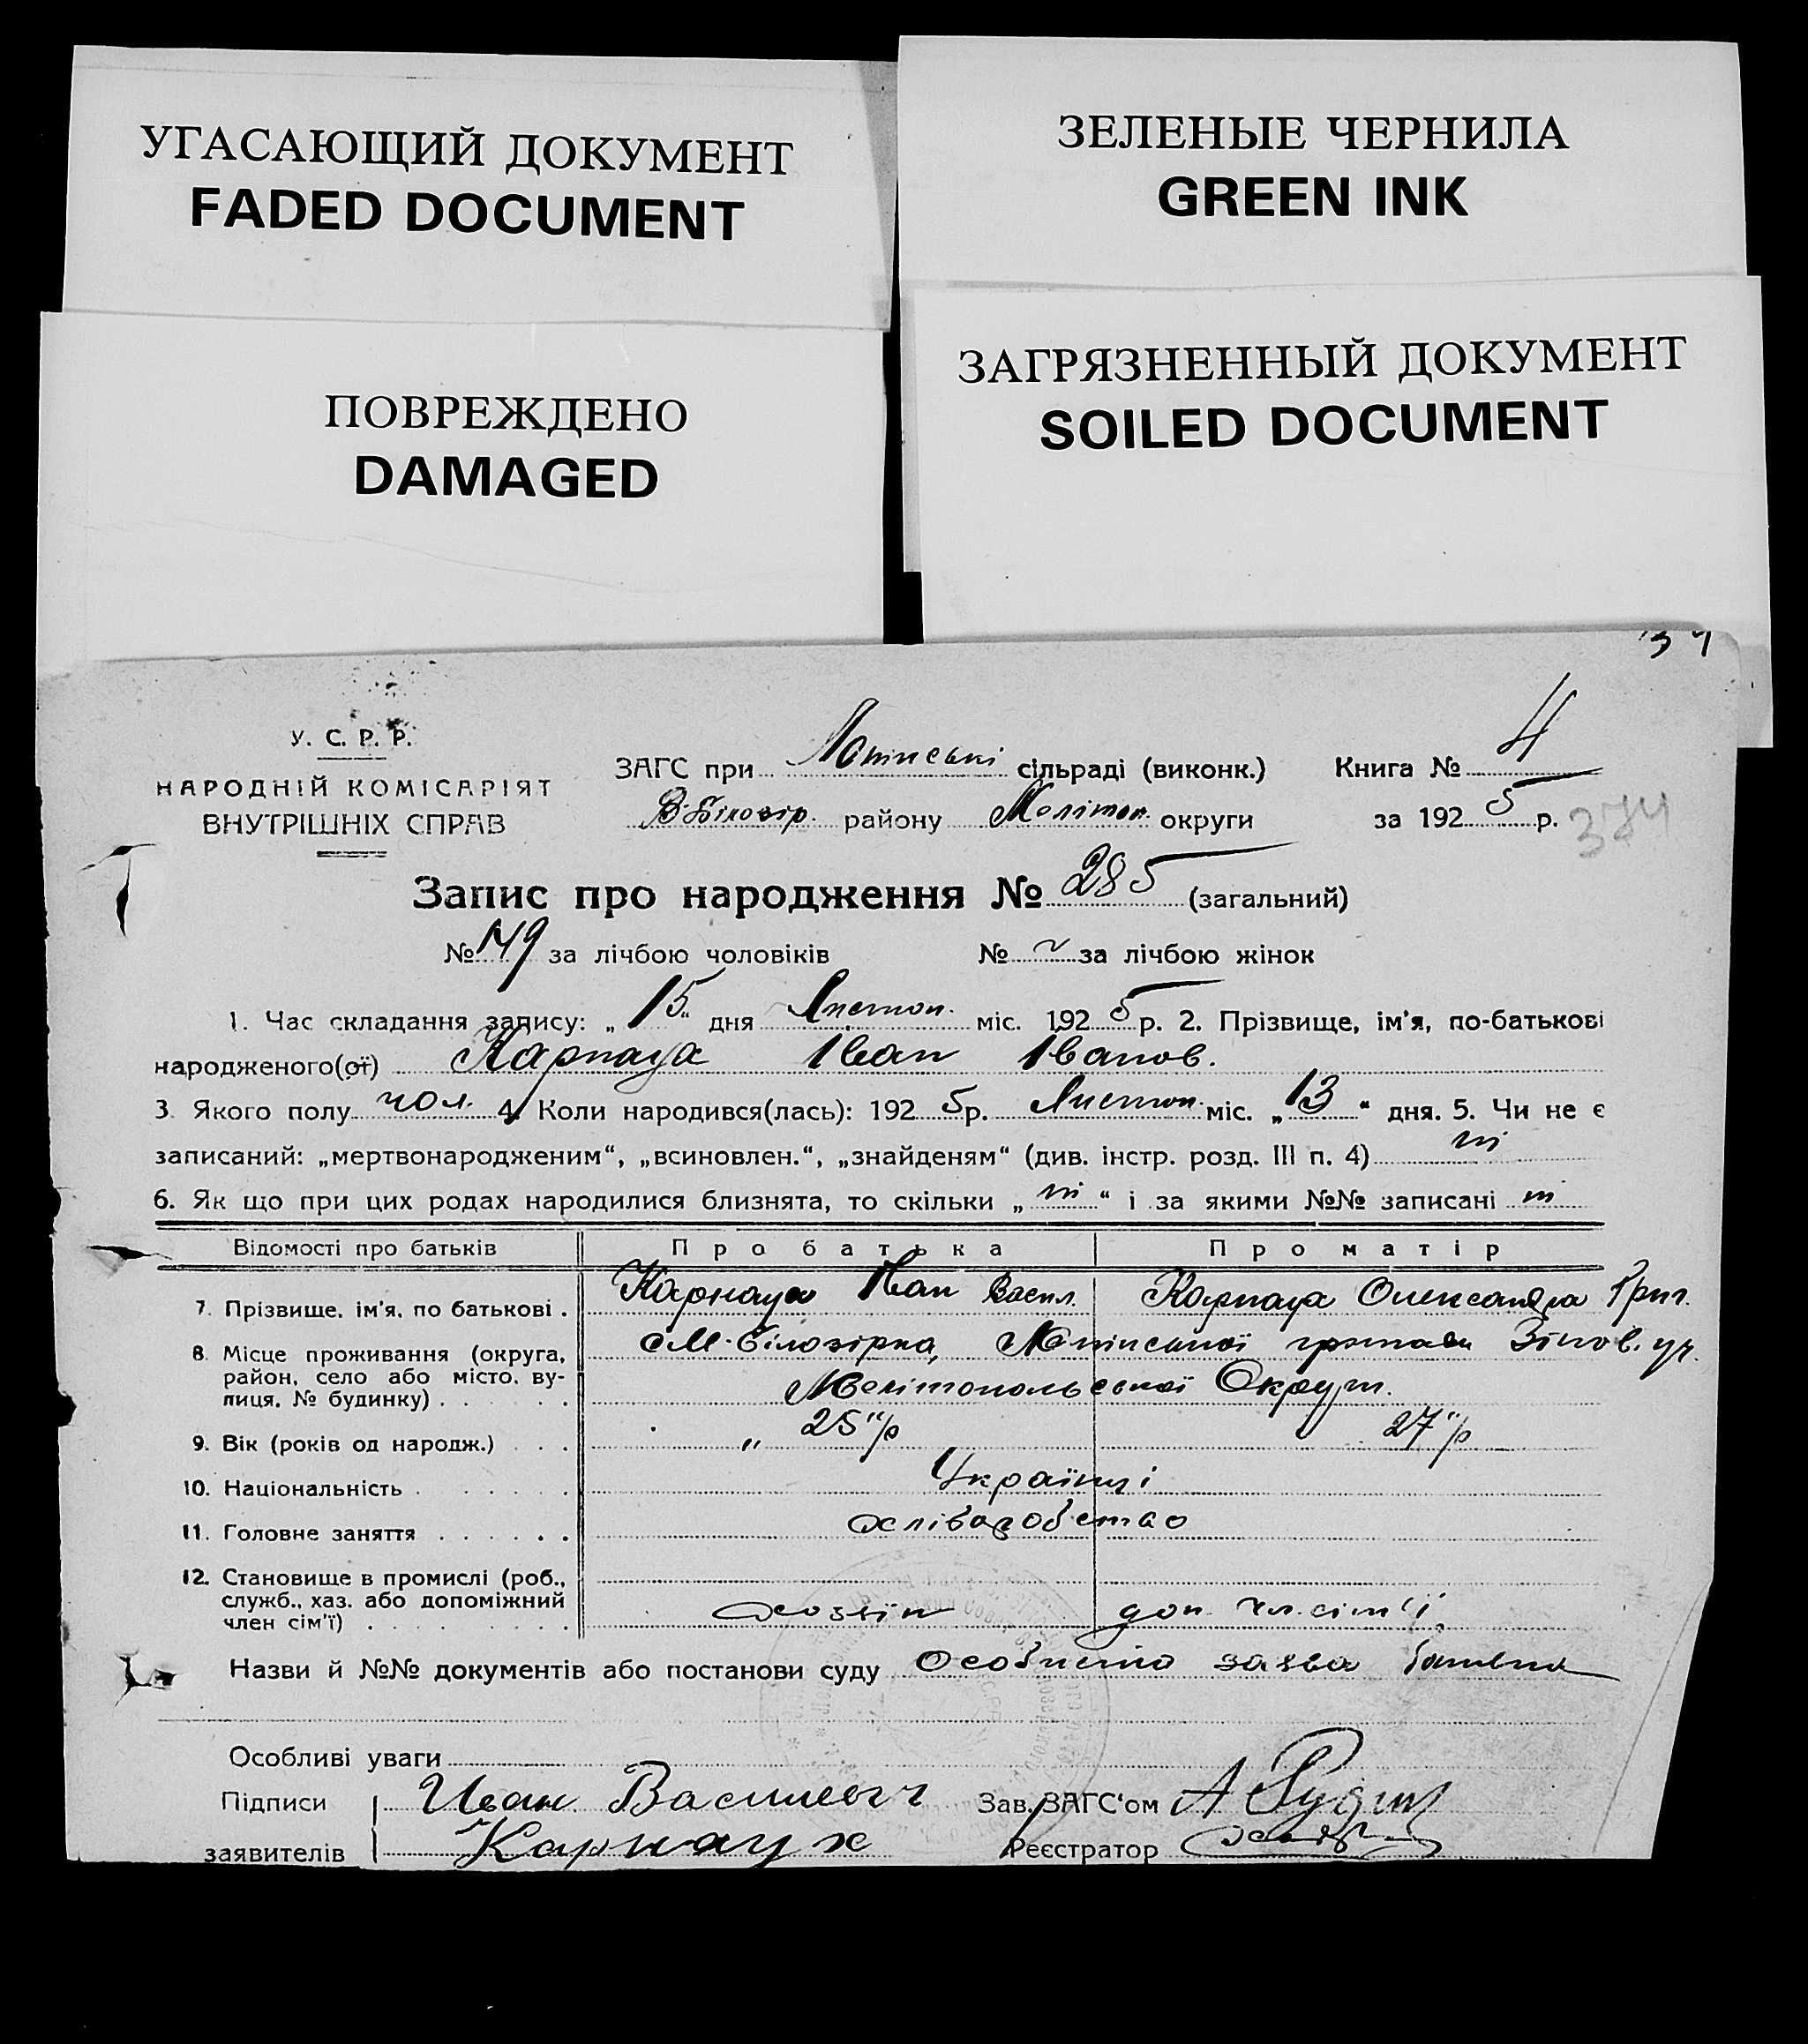 УГАСАЮЩИЙ ДОКУМЕНТ
FADED DOCUMENT
ЗЕЛЕНЫЕ ЧЕРНИЛА
GREEN INK
ПОВРЕЖДЕНО
DAMAGED
ЗАГРЯЗНЕННЫЙ ДОКУМЕНТ
SOILED DOCUMENT
У. С. Р. Р.
НАРОДНІЙ КОМІСАРІЯТ
ВНУТРІШНІХ СПРАВ
ЗАГС при сільраді (виконк.) Книга № 4
В-Білозір. району Меліноп. округи за 1925 р.
374
Запис про народження № 285 (загальний)
№ 149 за лічбою чоловіків № за лічбою жінок
1. Час складання запису: „15“ дня Листоп. міс. 1925 р. 2. Прізвище, ім'я, по-батькові
народженого(ої) Карнауа Іван Іванов.
3. Якого полу чол. 4. Коли народився(лась): 1925 р. Листоп. міс. „13“ дня. 5. Чи не є
записаний: „мертвонародженим“, „всиновлен.“, „знайденям“ (див. інстр. розд. III п. 4) ні
6. Як що при цих родах народилися близнята, то скільки „ні“ і за якими №№ записані ні
Відомості про батьків Про батька Про матір
7. Прізвище, ім'я, по батькові . Карнауа Іван Васил. Карнауа Олександра Григ.
8. Місце проживання (округа, М-Білозірка,
район, село або місто, ву- Мелітопольської Округи.
лиця, № будинку) . . . .
9. Вік (років од народж.) . . . „ 25 "/р 27 "/р
10. Національність . . . . . . Українці
11. Головне заняття . . . . . . хліборобство
12. Становище в промислі (роб.,
служб., хаз. або допоміжний
член сім'ї) . . . . . . . . хозяїн доп. чл. сім'ї
Назви й №№ документів або постанови суду Особиста заява батька
Особливі уваги
Підписи Иван Василевич Зав. ЗАГС'ом
заявителів Карнаух Реєстратор